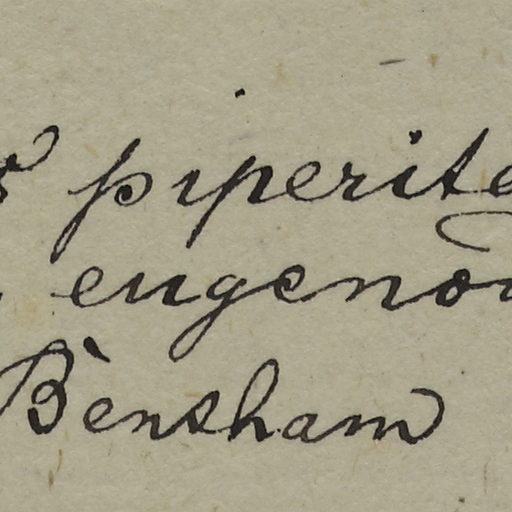 piperita
eugenoi
Bentham